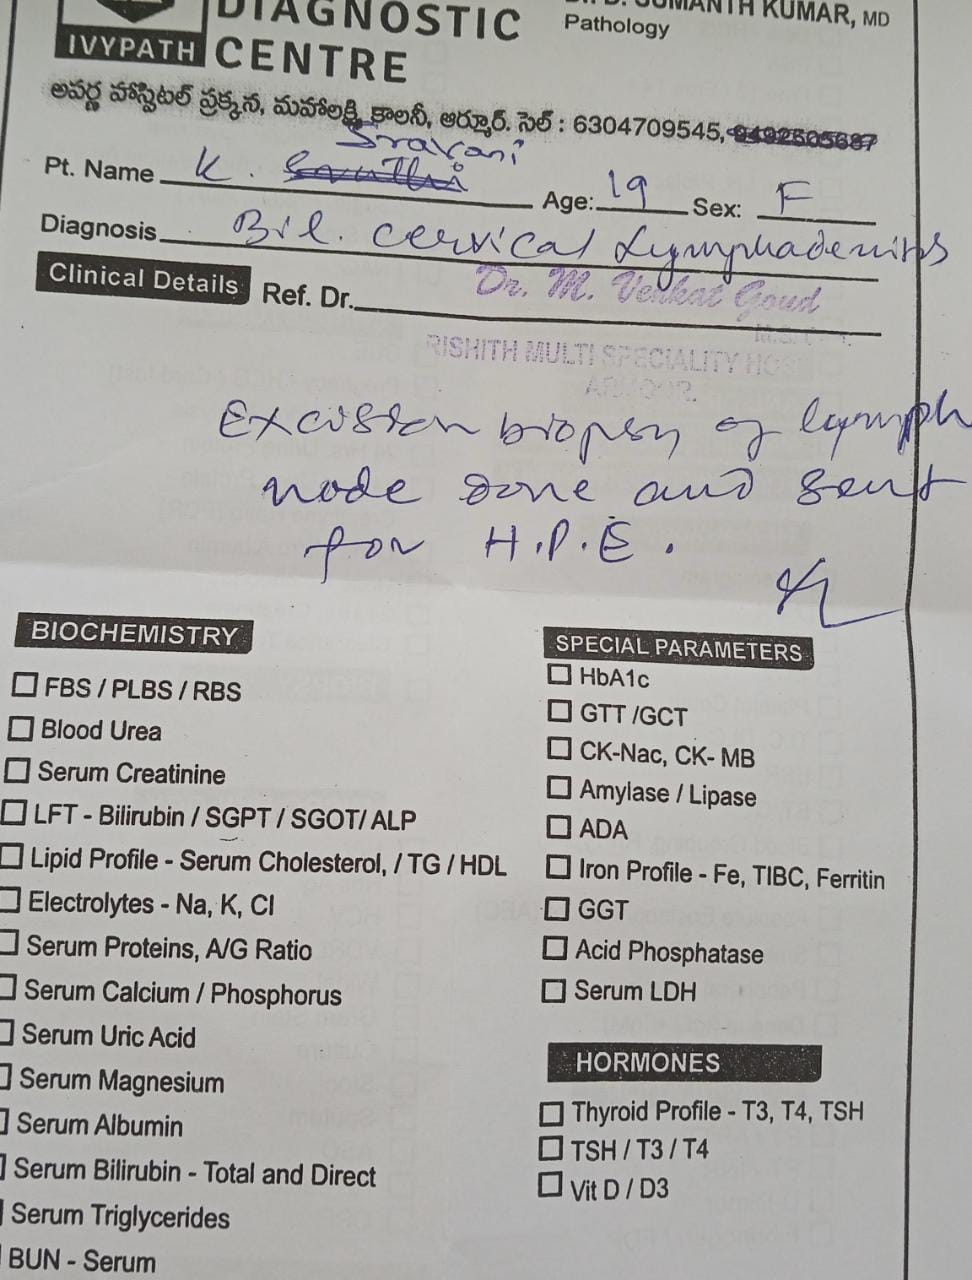 DIAGNOSTIC
CENTRE
IVYPATH
SUMANTH KUMAR, MD
Pathology
అపర్ణ హాస్పిటల్ ప్రక్కన, మహాలక్ష్మి కాలనీ, ఆర్మూర్. సెల్ : 6304709545, 9492505687
Pt. Name K. Sravani Age: 19 Sex: F
Diagnosis Bil. cervical Lymphadenitis
Clinical Details Ref. Dr. Dr. M. Venkat Goud
RISHITH MULTI SPECIALITY HOS
ARMOOR.
Excision biopsy of lymph
node done and sent
for H.P.E.
BIOCHEMISTRY
FBS / PLBS / RBS
Blood Urea
Serum Creatinine
LFT - Bilirubin / SGPT / SGOT/ ALP
Lipid Profile - Serum Cholesterol, / TG / HDL
Electrolytes - Na, K, Cl
Serum Proteins, A/G Ratio
Serum Calcium / Phosphorus
Serum Uric Acid
Serum Magnesium
Serum Albumin
Serum Bilirubin - Total and Direct
Serum Triglycerides
BUN - Serum
SPECIAL PARAMETERS
HbA1c
GTT /GCT
CK-Nac, CK- MB
Amylase / Lipase
ADA
Iron Profile - Fe, TIBC, Ferritin
GGT
Acid Phosphatase
Serum LDH
HORMONES
Thyroid Profile - T3, T4, TSH
TSH / T3 / T4
Vit D / D3